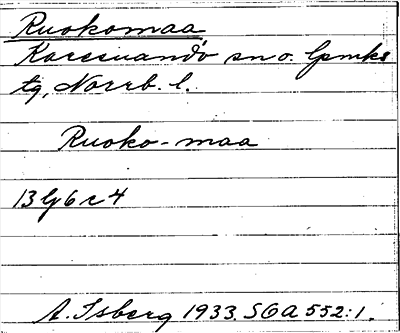 Ruokomaa
Karesuando sn o. lpmks
tg, Norrb. l.
Ruoko-maa
13 lj 6 c 4
A. Isberg 1933. SOA 552:1.